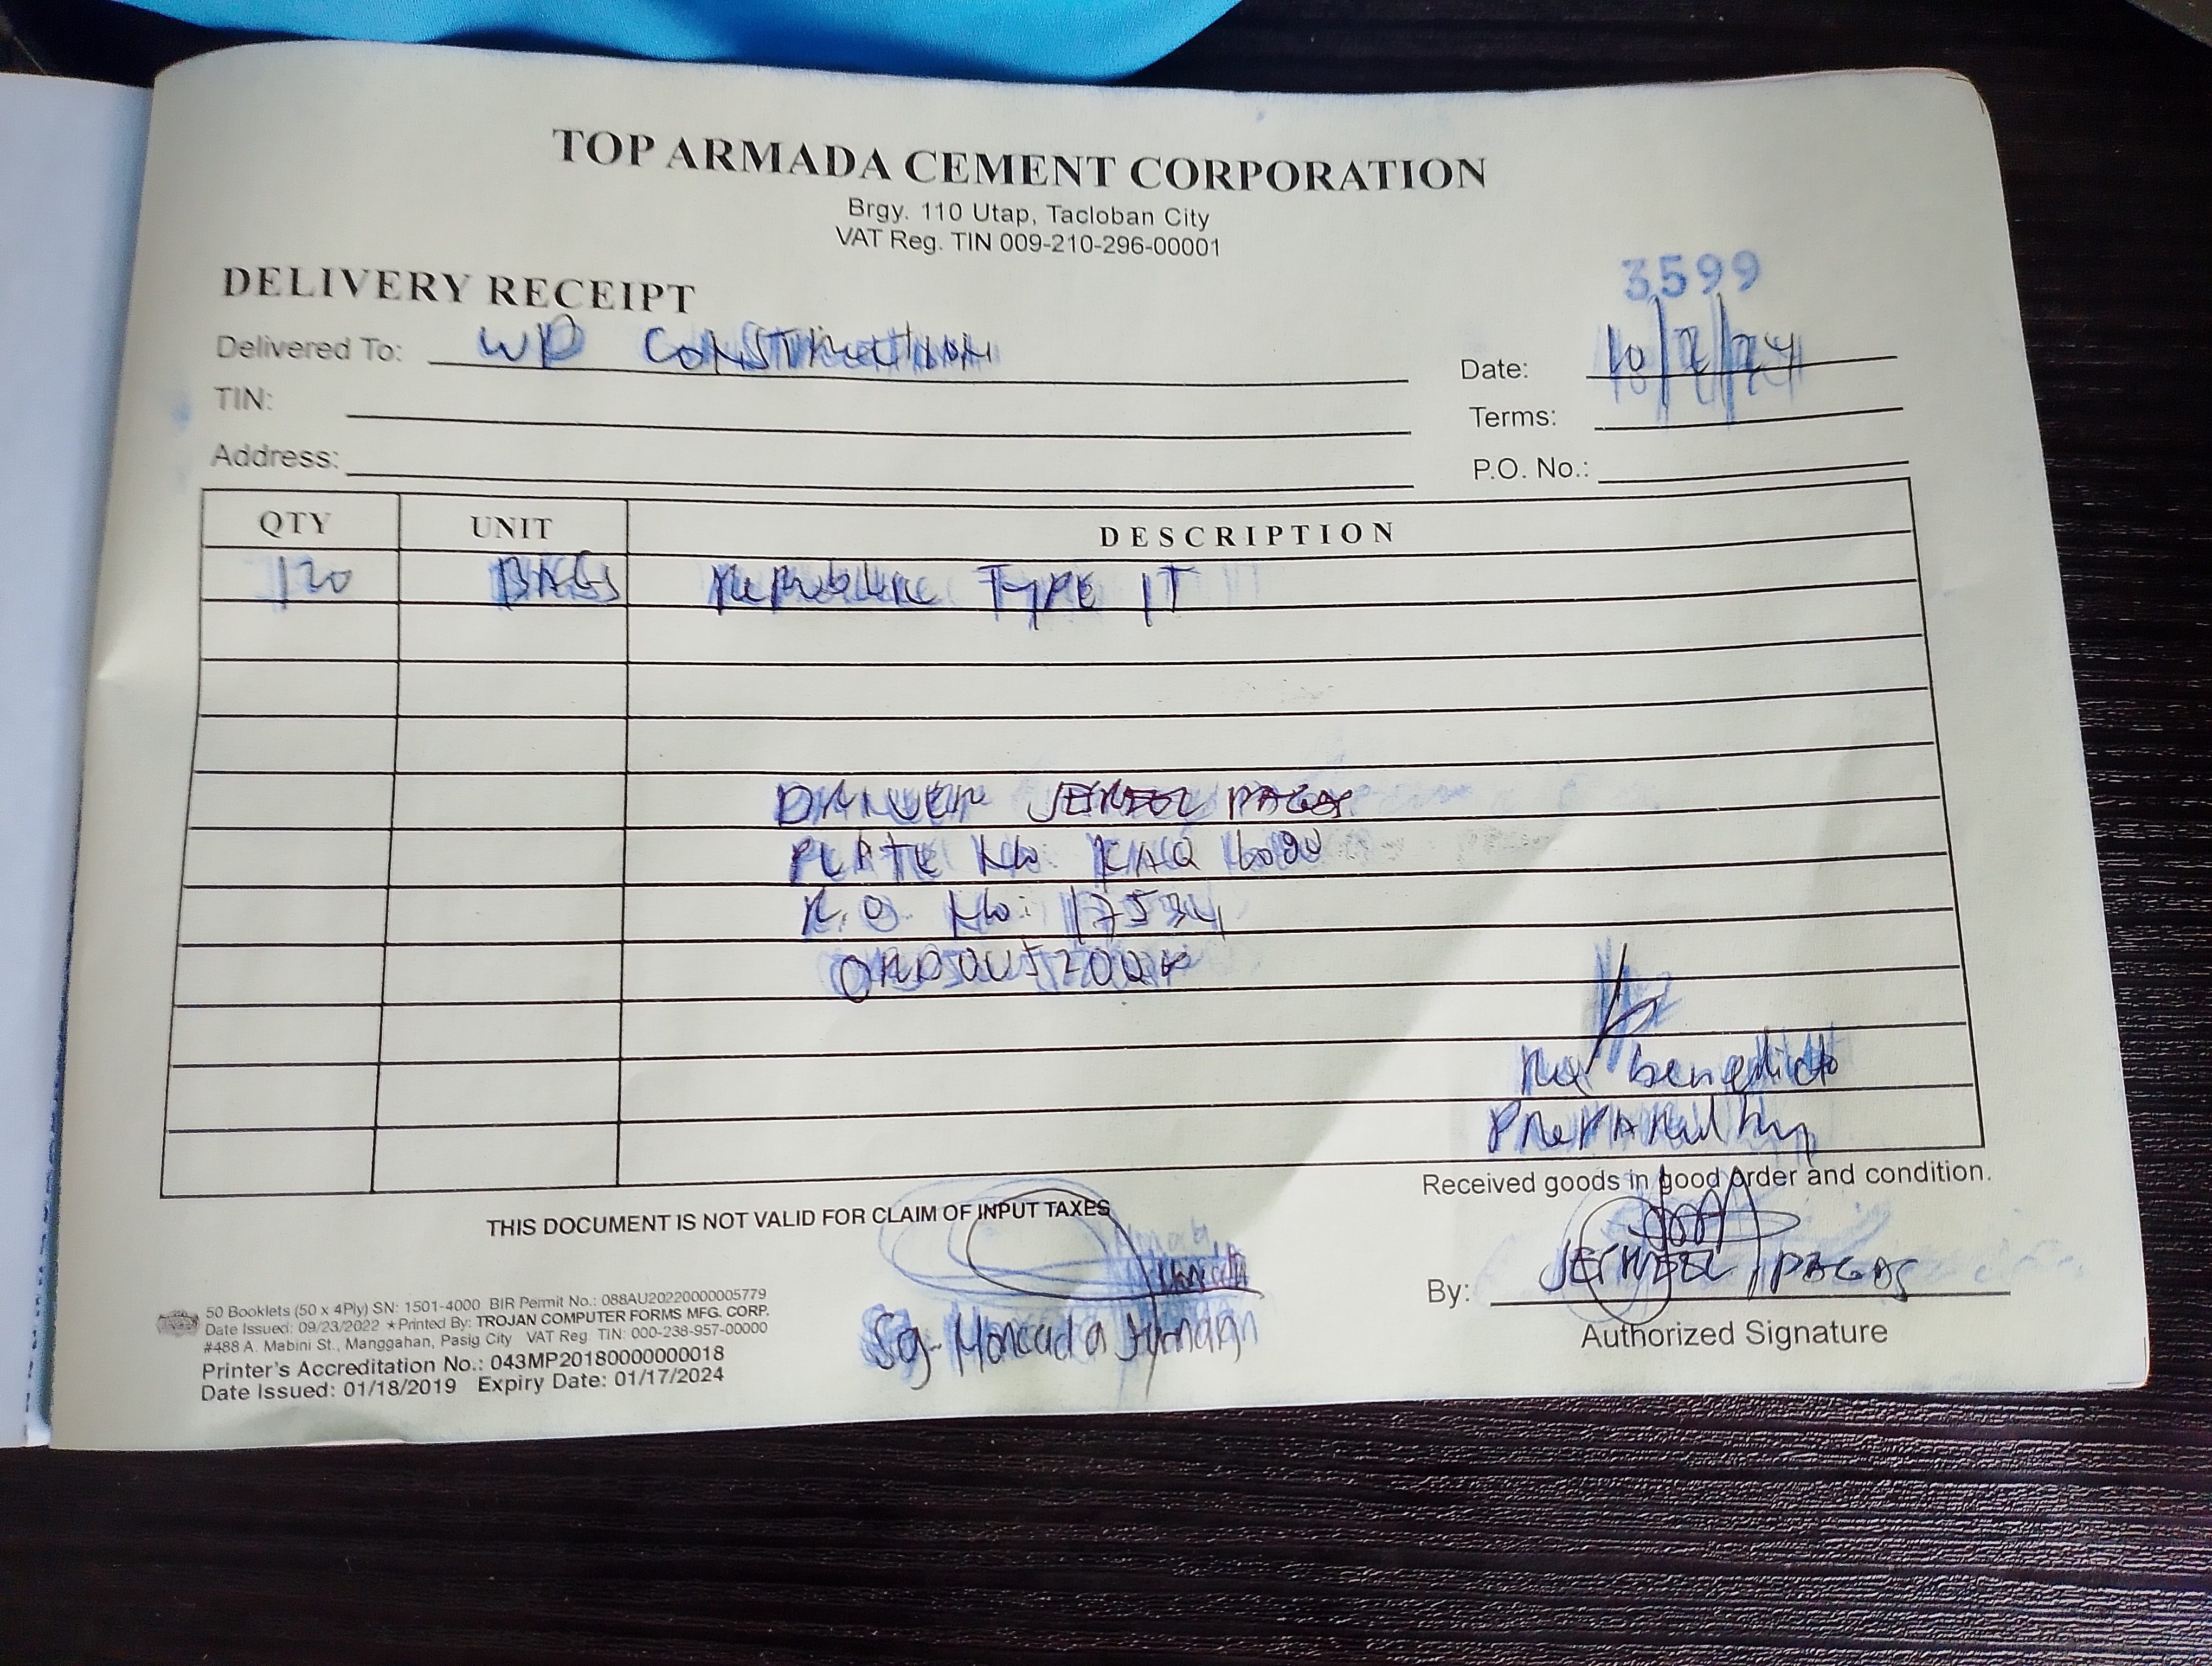 TOP ARMADA CEMENT CORPORATION
Brgy. 110 Utap, Tacloban City
VAT Reg. TIN 009-210-296-00001
3599
DELIVERY RECEIPT
Delivered To: WD CONSTRUCTION
Date: 10/2/24
TIN:
Terms:
Address:
P.O. No.:
QTY UNIT DESCRIPTION
120 BAGS Republic TYPE IT
DRIVER JERMEL PAGAS
PLATE No: KAQ 6090
R.O. No: 17534
benedicto
PREPARED by
Received goods in good order and condition.
THIS DOCUMENT IS NOT VALID FOR CLAIM OF INPUT TAXES
By: PAGAS
Authorized Signature
Sg. Moncada
50 Booklets (50 x 4Ply) SN: 1501-4000 BIR Permit No.: 088AU20220000005779
Date Issued: 09/23/2022 ★Printed By: TROJAN COMPUTER FORMS MFG. CORP.
#488 A. Mabini St., Manggahan, Pasig City VAT Reg. TIN: 000-238-957-00000
Printer's Accreditation No.: 043MP20180000000018
Date Issued: 01/18/2019 Expiry Date: 01/17/2024